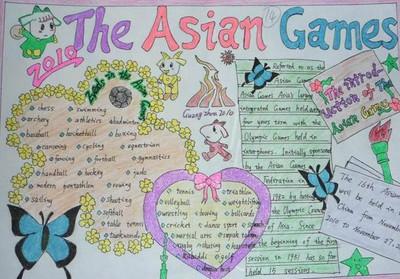 The Asian Games
2010
14
Sports in the Asian Games
chess swimming
archery athletics badminton
baseball basketball boxing
canoeing cycling equestrian
fencing football gymnastics
handball hockey judo
modern pentathlon rowing
sailing shooting
softball
table tennis
taekwondo
tennis triathlon
volleyball weightlifting
wrestling bowling billiards
cricket dance sport
martial arts
rugby skating
Kabaddi golf
Guang Zhou 2010
Referred to as the
Asian Games,
Asia Games, Asia's largest
integrated Games held every
four years term with the
Olympic Games held in
Initially sponsored
by the Asian Games
Federation in
1982 by hosted
the Olympic Council
of Asia. Since
the beginning of the first
session in 1951 has so far
held 15 sessions.
The introd-
uction of The
Asian Games
The 16th Asian
will be held in
China from November
2010 to November 27,